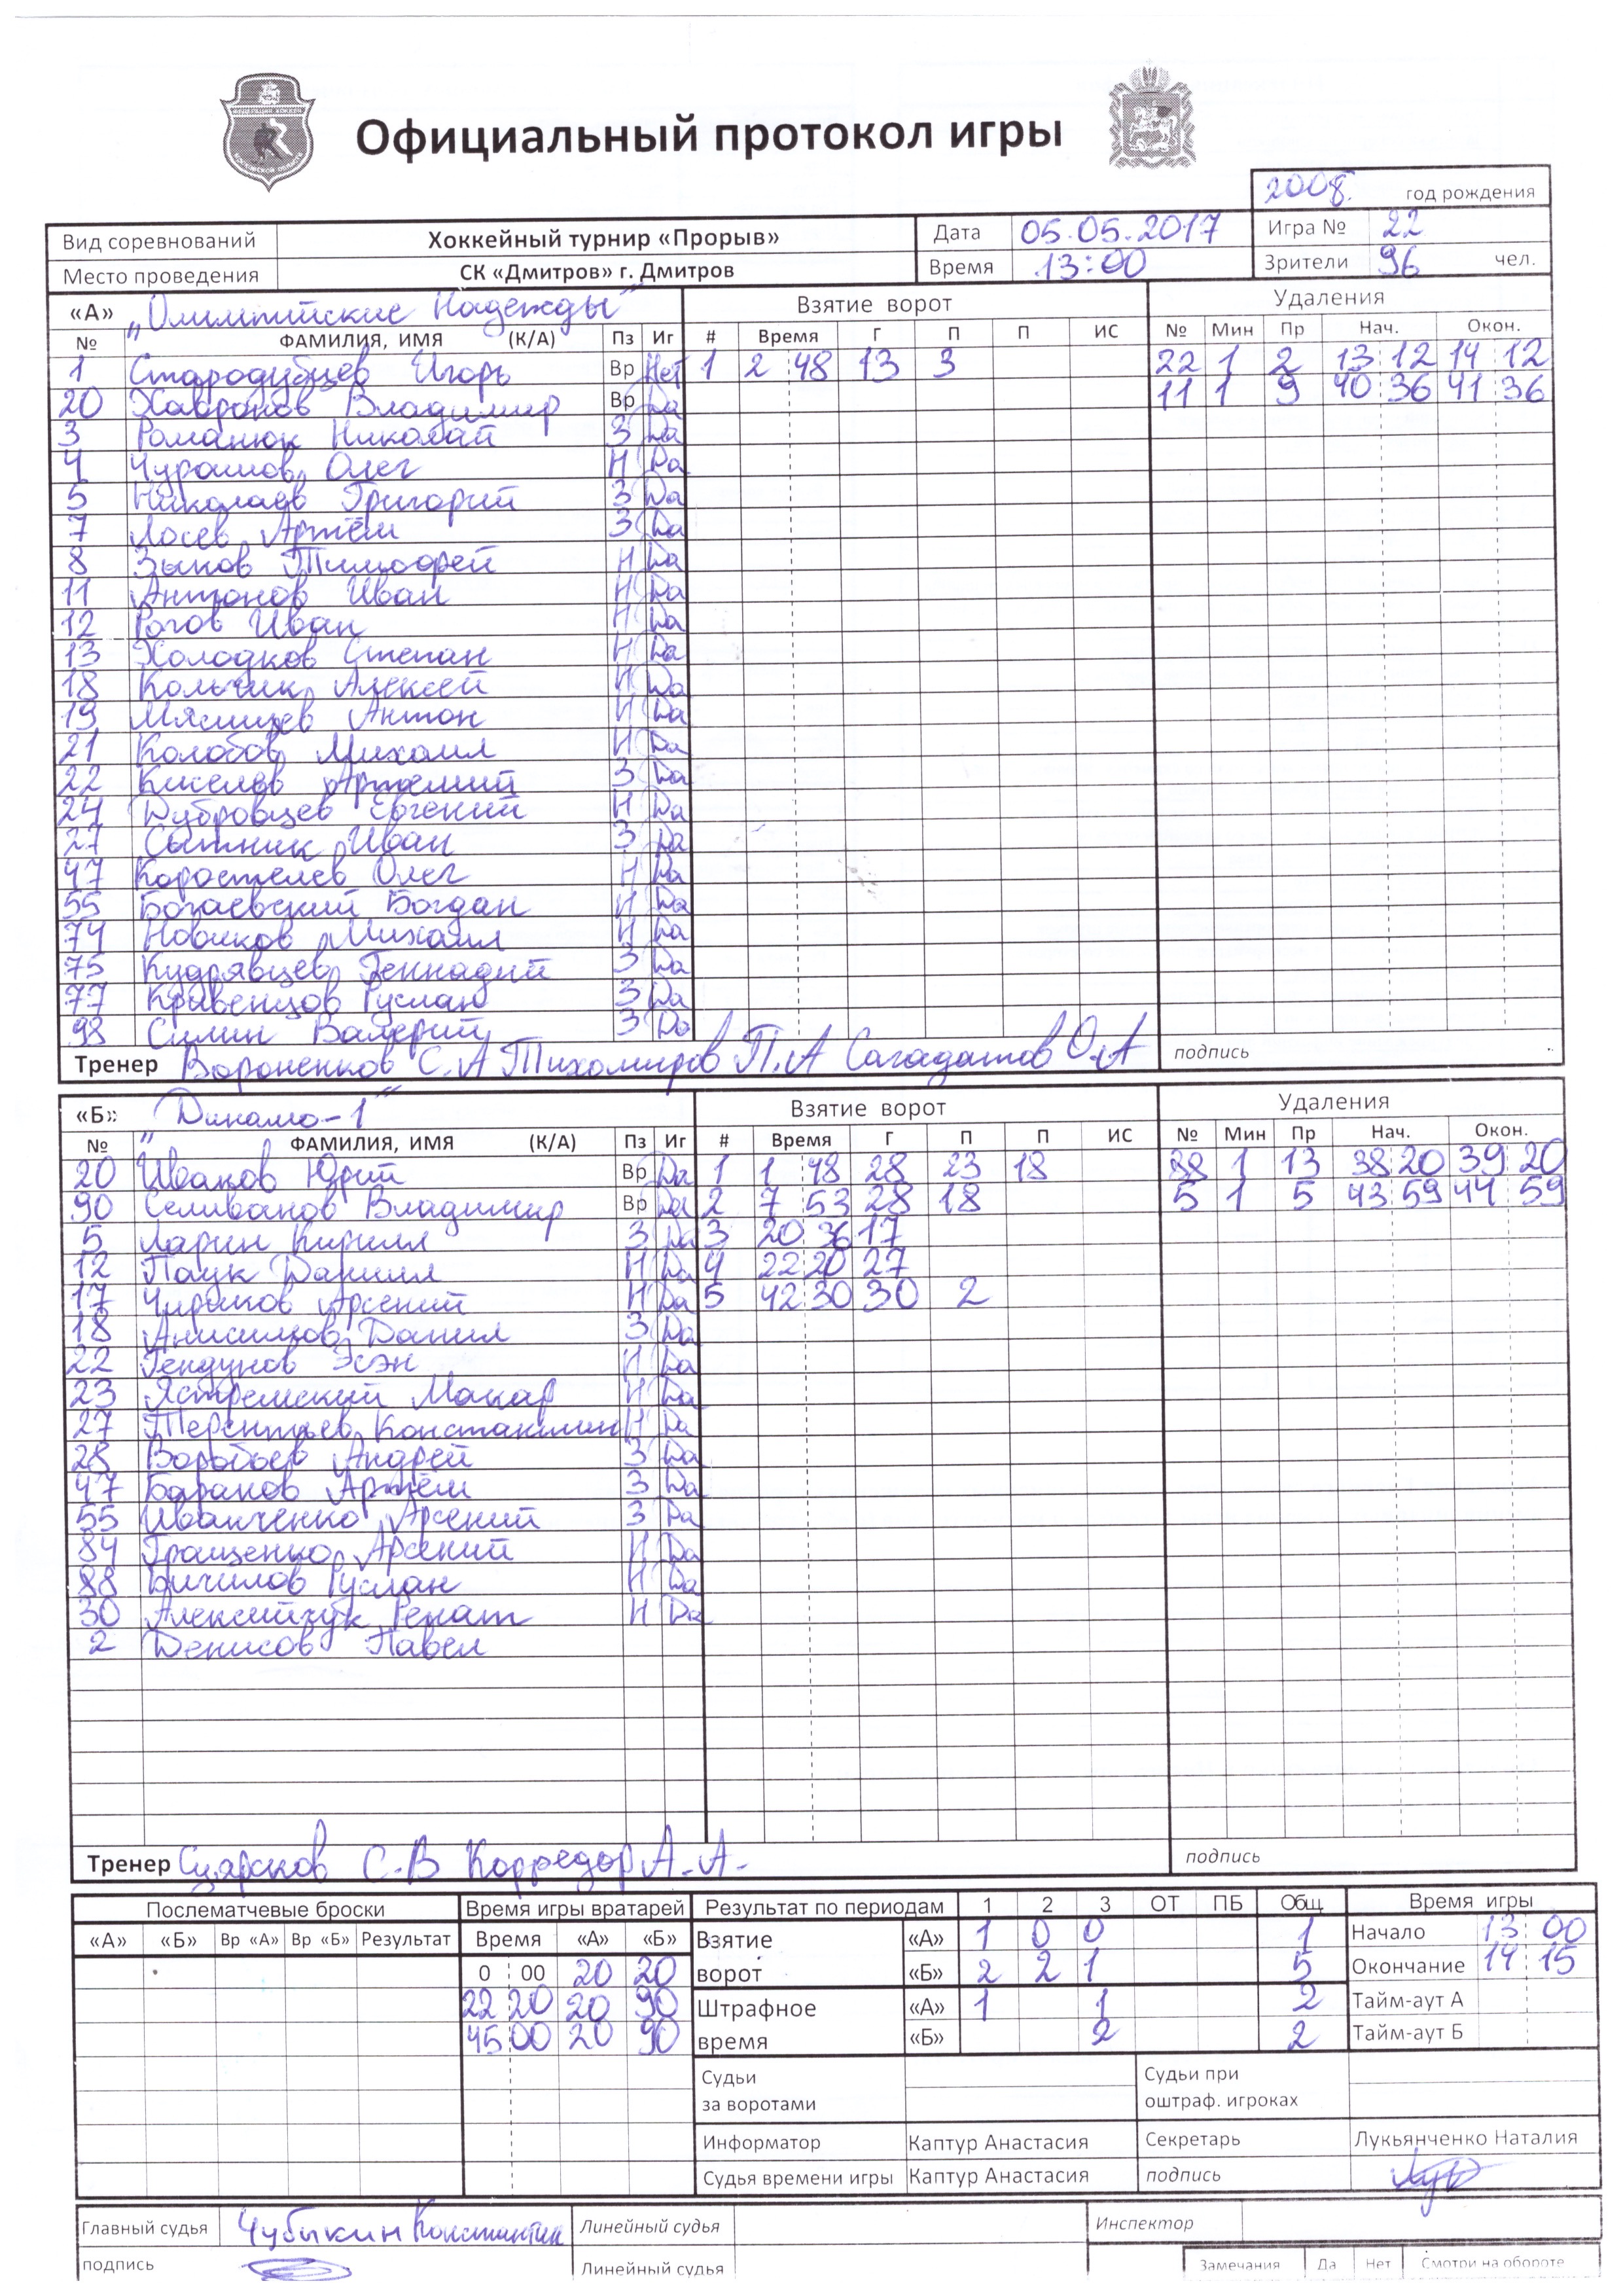 Официальный протокол игры
2008. год рождения
Вид соревнований Хоккейный турнир «Прорыв» Дата 05.05.2017 Игра № 22
Место проведения СК «Дмитров» г. Дмитров Время 13:00 Зрители 96 чел.
«А» "Олимпийские Надежды" Взятие ворот Удаления
№ ФАМИЛИЯ, ИМЯ (К/А) Пз Иг # Время Г П П ИС № Мин Пр Нач. Окон.
1 Стародубцев Игорь Вр Нет 1 2 48 13 3 22 1 2 13 12 14 12
20 Хавронов Владимир Вр Да 11 1 9 40 36 41 36
3 Романюк Николай З Да
4 Чурашов Олег Н Да
5 Николаев Григорий З Да
7 Лосев Артём З Да
8 Зыков Тимофей Н Да
11 Антонов Иван Н Да
12 Рогов Иван Н Да
13 Холодков Степан Н Да
18 Кольчик Алексей Н Да
19 Мясищев Антон Н Да
21 Колобов Михаил Н Да
22 Киселев Артемий З Да
24 Дубровцев Евгений Н Да
27 Сытник Иван З Да
47 Коростелев Олег Н Да
55 Богаевский Богдан Н Да
74 Новиков Михаил Н Да
75 Кудрявцев Геннадий З Да
77 Кривенцов Руслан З Да
98 Силин Валерий З Да
Тренер Вороненков С.А Тихомиров П.А Сагадатов О.А подпись
«Б» "Динамо-1" Взятие ворот Удаления
№ ФАМИЛИЯ, ИМЯ (К/А) Пз Иг # Время Г П П ИС № Мин Пр Нач. Окон.
20 Иванов Юрий Вр Да 1 1 48 28 23 18 88 1 13 38 20 39 20
90 Селиванов Владимир Вр Да 2 7 53 28 18 5 1 5 43 59 44 59
5 Ларин Кирилл З Да 3 20 36 17
12 Паук Даниил Н Да 4 22 20 27
17 Чириков Арсений Н Да 5 42 30 30 2
18 Анисимов Данил З Да
22 Гендунов Эсэн Н Да
23 Ястремский Макар Н Да
27 Терентьев Константин Н Да
28 Воробьев Андрей З Да
47 Баранов Артём З Да
55 Иванченко Арсений З Да
84 Гращенко Арсений Н Да
88 Бичилов Руслан Н Да
30 Алексейчук Ренат Н Да
2 Денисов Павел
Тренер С.В Корредор А.А. подпись
Послематчевые броски Время игры вратарей Результат по периодам 1 2 3 ОТ ПБ Общ Время игры
«А» «Б» Вр «А» Вр «Б» Результат Время «А» «Б» Взятие «А» 1 0 0 1 Начало 13 00
0 00 20 20 ворот «Б» 2 2 1 5 Окончание 14 15
22 20 20 90 Штрафное «А» 1 1 2 Тайм-аут А
45 00 20 90 время «Б» 2 2 Тайм-аут Б
Судьи за воротами Судьи при оштраф. игроках
Информатор Каптур Анастасия Секретарь Лукьянченко Наталия
Судья времени игры Каптур Анастасия подпись
Главный судья Чубыкин Константин Линейный судья Инспектор
подпись Линейный судья Замечания Да Нет Смотри на обороте